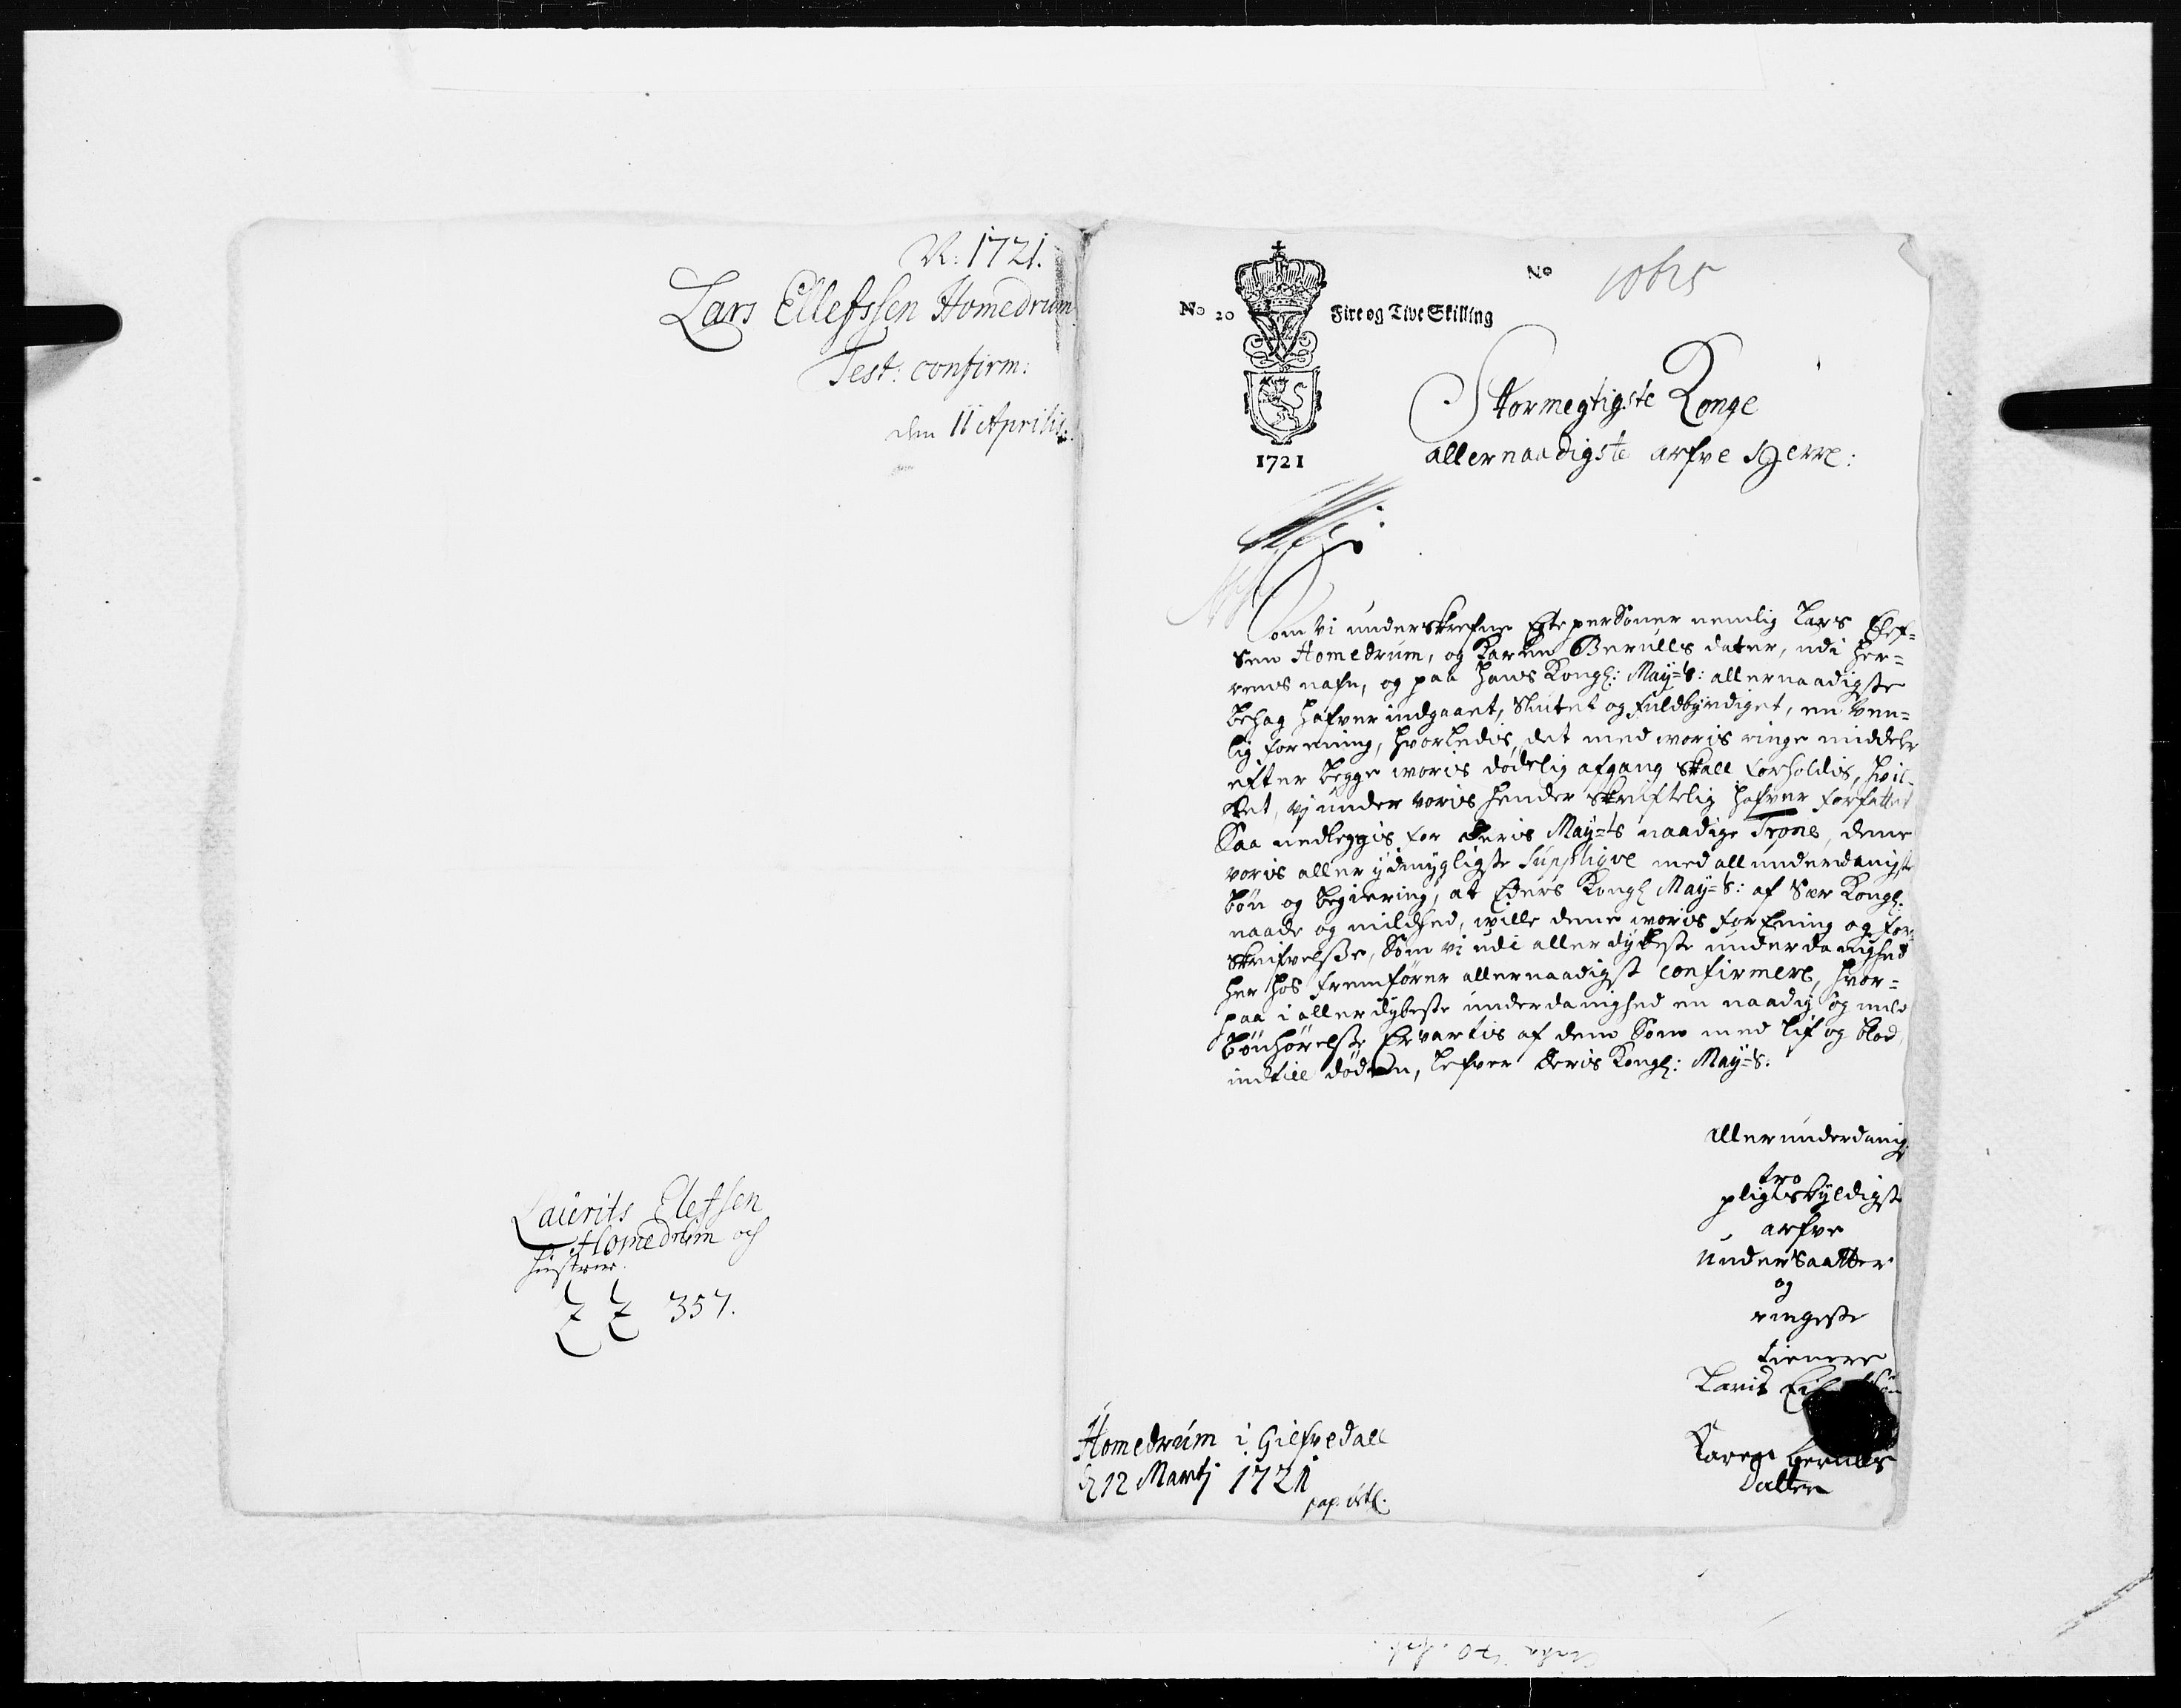 R: 1721.
Lars Ellefssen Homedrum
Test: confirm:
den 11 Aprilis:
Laurits Elefsen
Homedrum och
hustrue.
357.
No 20
Fire og Tive Skilling
No
1721
Stormegtigste Konge
allernaadigste arfve Herre:
Som Vi underskrefne Egte personer nemlig Lars Elef=
sen Homedrum, og Karen Berulls dater, udi Her=
rens nafn, og paa Hans Kongl: May=ts: allernaadigste
behag hafver indgaaet, Slutet og fuldbyrdiget, en ven=
lig forening, hvorledis, det med woris ringe middeler
efter begge woris dødelig afgang skall forholdis, hvil-
ket, vj under voris hender skriftelig hafver forfattet
Saa nedleggis for Deris May=ts naadige Trone, denne
voris aller ydmygligste Supplique med allunderdanigste
bøn og begiering, at Eders Kongl May=ts: af Sær Kongl:
naade og mildhed, wille denne woris forEning og for=
skrifvelsse, Som vi udi aller dybeste underdanighed
her hos fremfører allernaadigst confirmere, hvor=
paa i aller dybeste underdanighed en naadig og mild
bønhørelsse Ervartis af dem Som med lif og blod,
indtill døden, lefver Deris Kongl: May=ts:
allerunderdanig
tro
pligtskyldigste
arfve
undersaatter
og
ringeste
tienere
Larits
Karen Berulls
Datter
Homedrum i Gilfvedall
d 12 Martj 1721
pap.